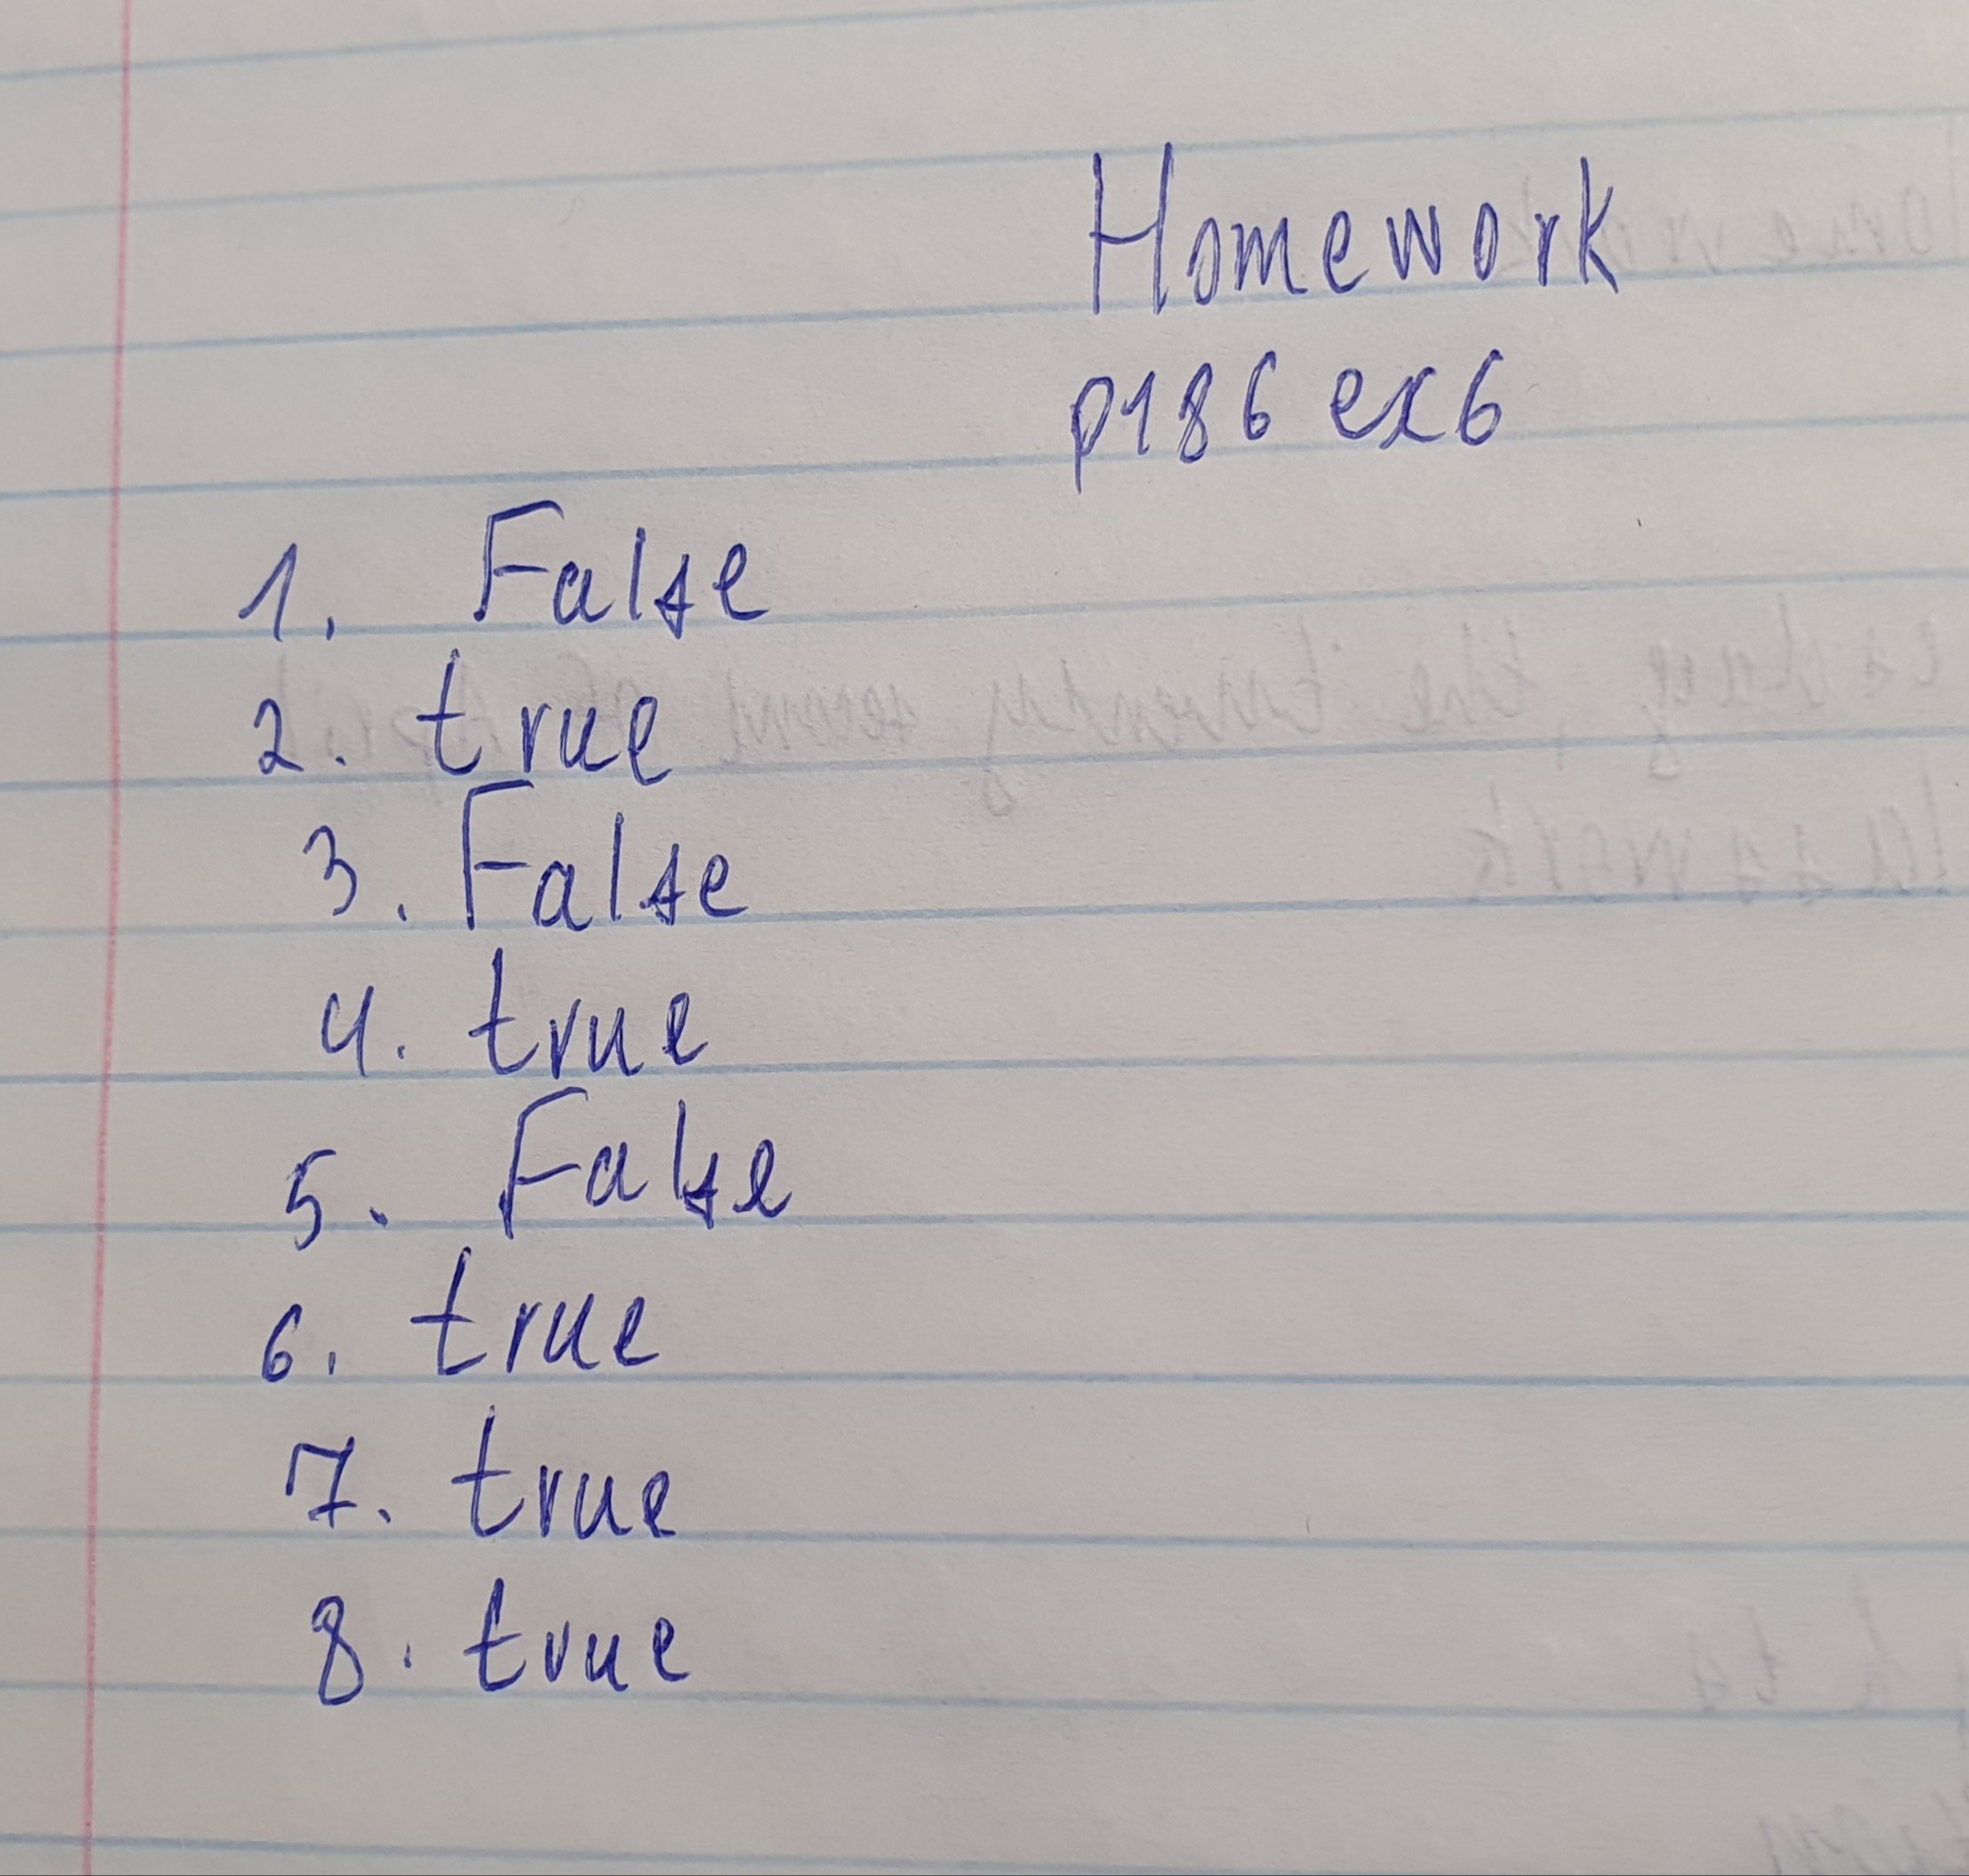 Homework
p186 ex6
1. False
2. true
3. False
4. true
5. False
6. true
7. true
8. true